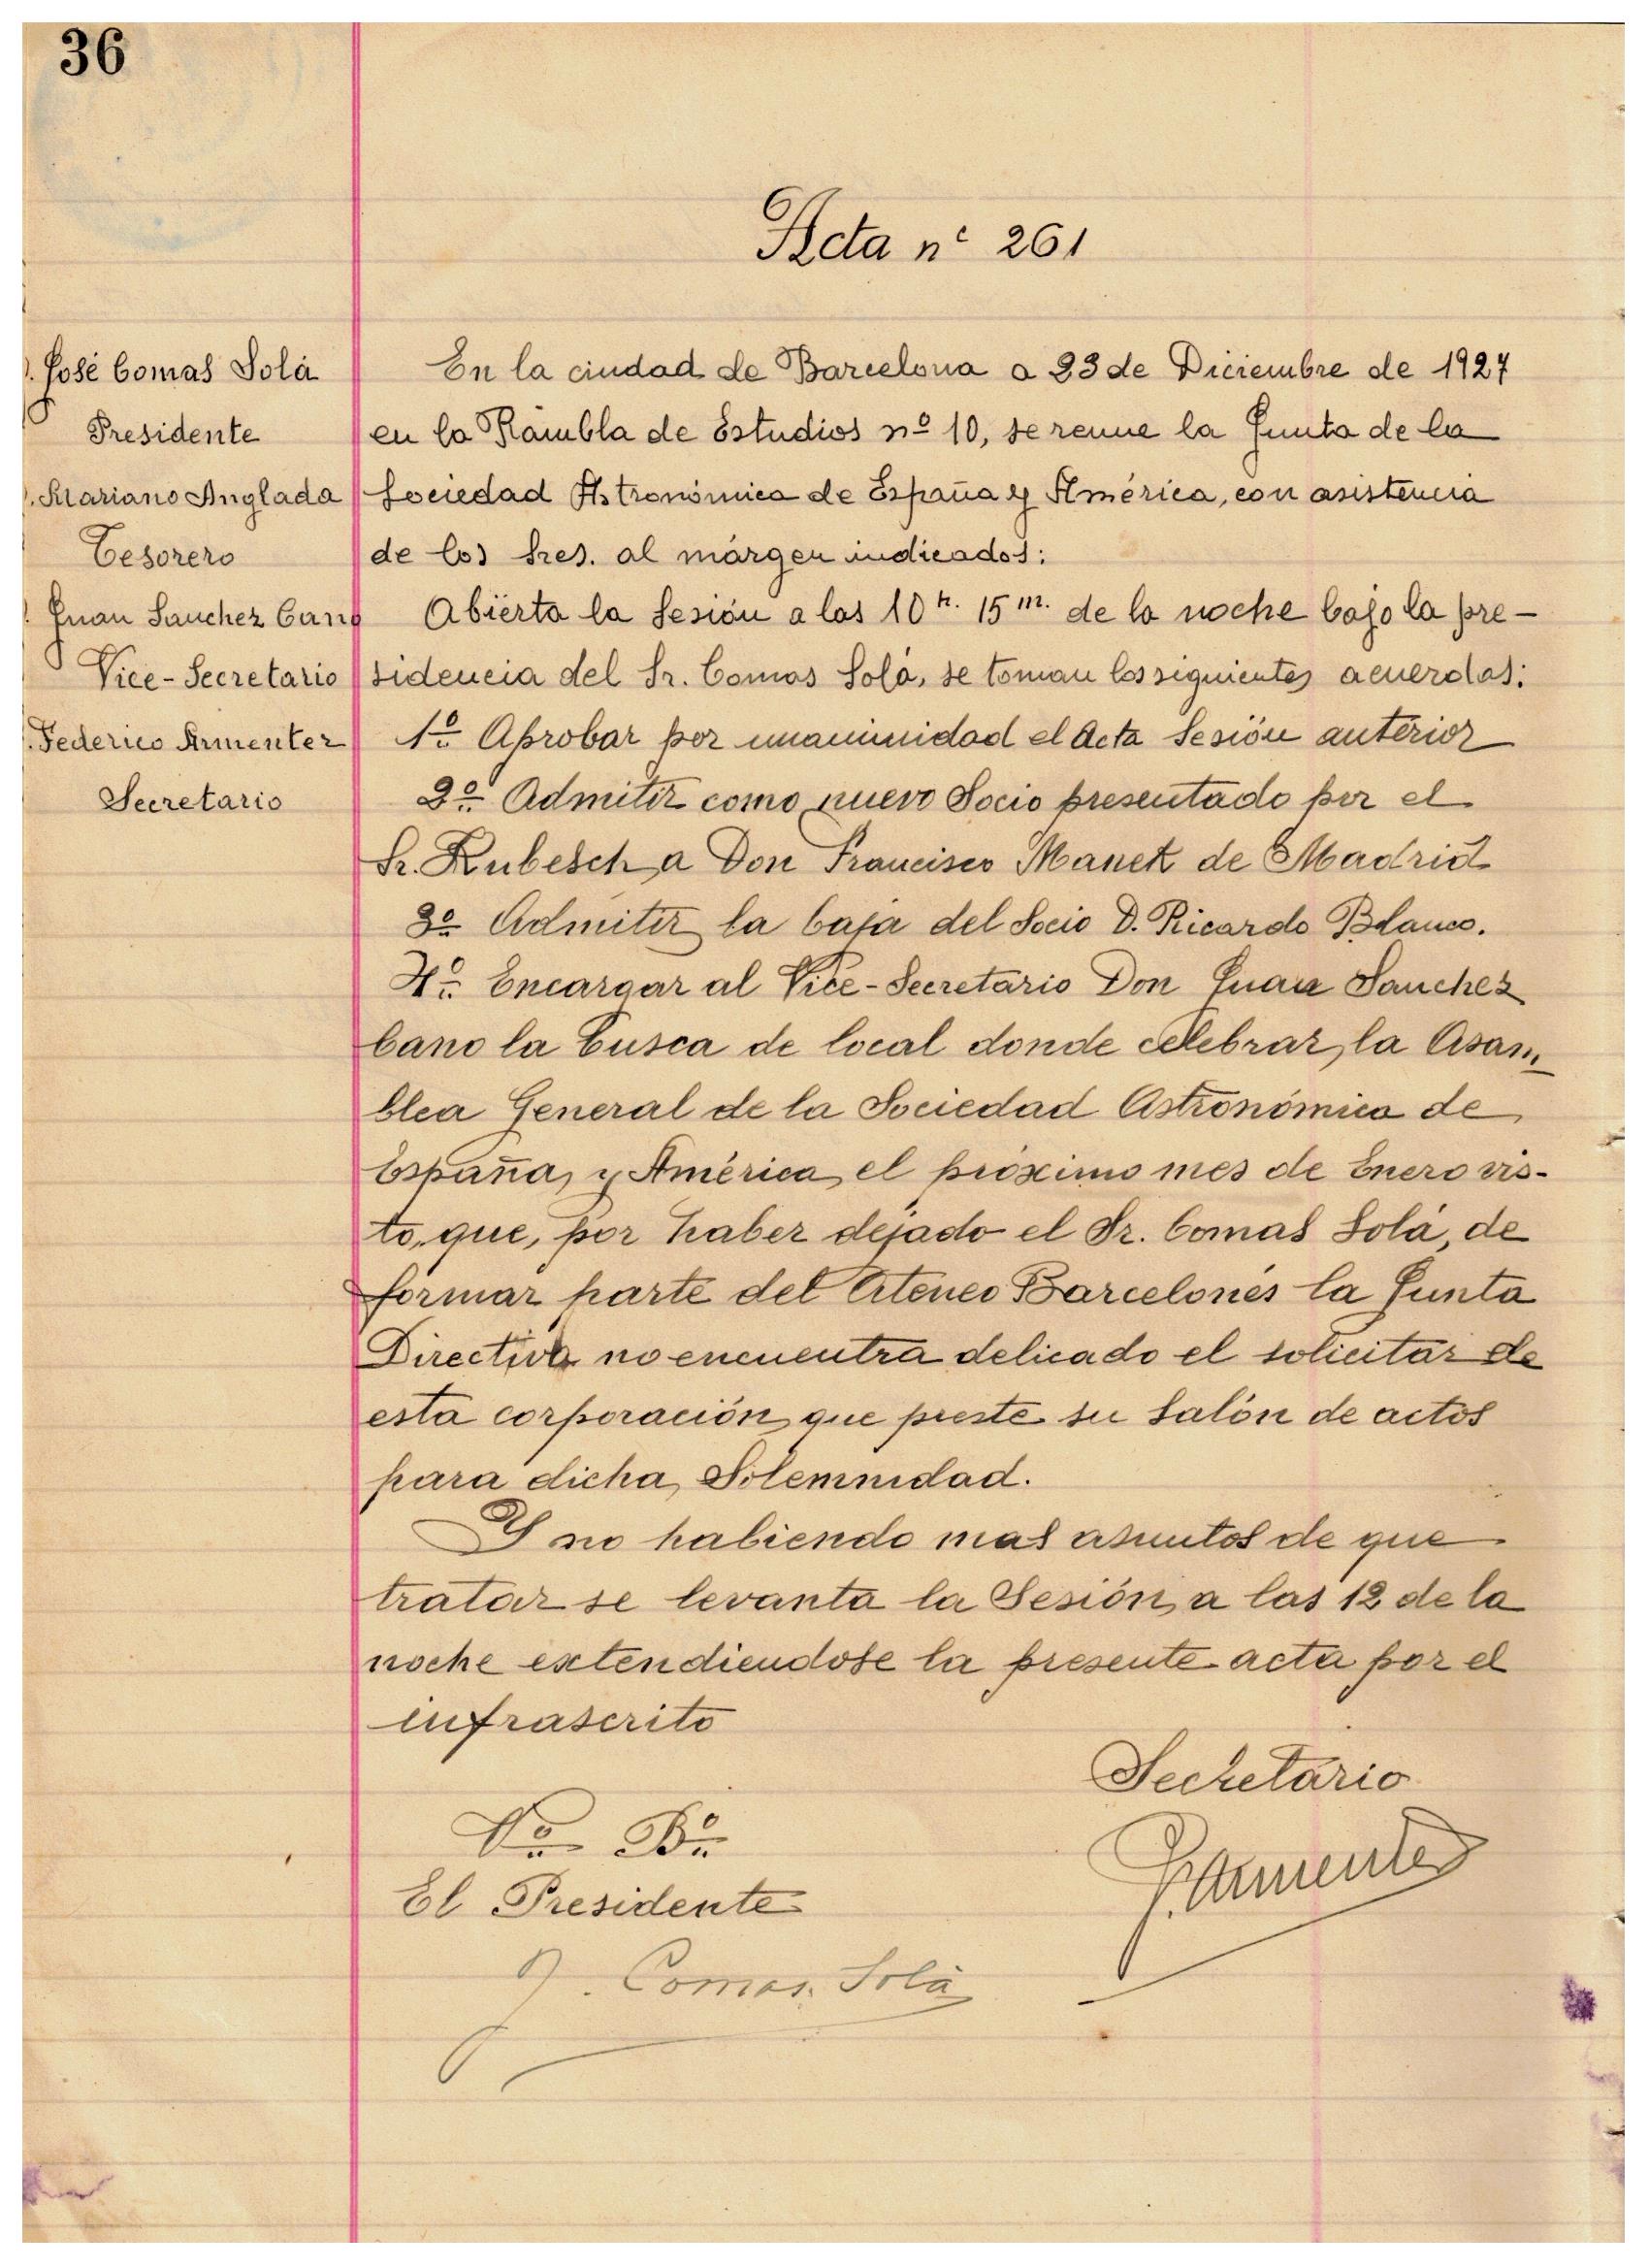 36
Acta nº 261
D. José Comas Solá
Presidente
D. Mariano Anglada
Tesorero
D. Juan Sanchez Cano
Vice-Secretario
D. Federico Armenter
Secretario
En la ciudad de Barcelona a 23 de Diciembre de 1927
en la Rambla de Estudios nº 10, se reune la Junta de la
Sociedad Astronómica de España y América, con asistencia
de los Sres. al márgen indicados:
Abierta la Sesión a las 10 h. 15 m. de la noche bajo la pre-
sidencia del Sr. Comas Solá, se toman los siguientes acuerdos:
1º Aprobar por unanimidad el Acta Sesión anterior
2º Admitir como nuevo Socio presentado por el
Sr. Kubesch a Don Francisco Manek de Madrid
3º Admitir la baja del Socio D. Ricardo Blanco.
4º Encargar al Vice-Secretario Don Juan Sanchez
Cano la busca de local donde celebrar la Asam
blea General de la Sociedad Astronómica de
España y América el próximo mes de Enero vis-
to, que, por haber dejado el Sr. Comas Solá, de
formar parte del Ateneo Barcelonés la Junta
Directiva no encuentra delicado el solicitar de
esta corporación que preste su Salón de actos
para dicha Solemnidad.
Y no habiendo mas asuntos de que
tratar se levanta la Sesión a las 12 de la
noche extendiendose la presente acta por el
infrascrito
Secretario
Vº Bº
F. Armenter
El Presidente
J. Comas Solá